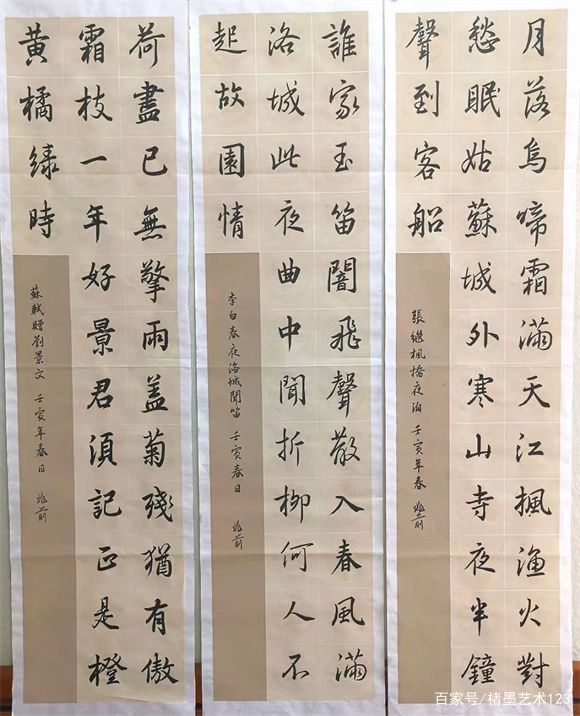 月落烏啼霜滿天江楓漁火對
愁眠姑蘇城外寒山寺夜半鐘
聲到客船
張繼楓橋夜泊 壬寅年春
誰家玉笛闇飛聲散入春風滿
洛城此夜曲中聞折柳何人不
起故園情
李白春夜洛城聞笛 壬寅春日
荷盡已無擎雨盖菊殘猶有傲
霜枝一年好景君須記正是橙
黃橘綠時
蘇軾贈劉景文 壬寅年春日
百家号/楮墨艺术123